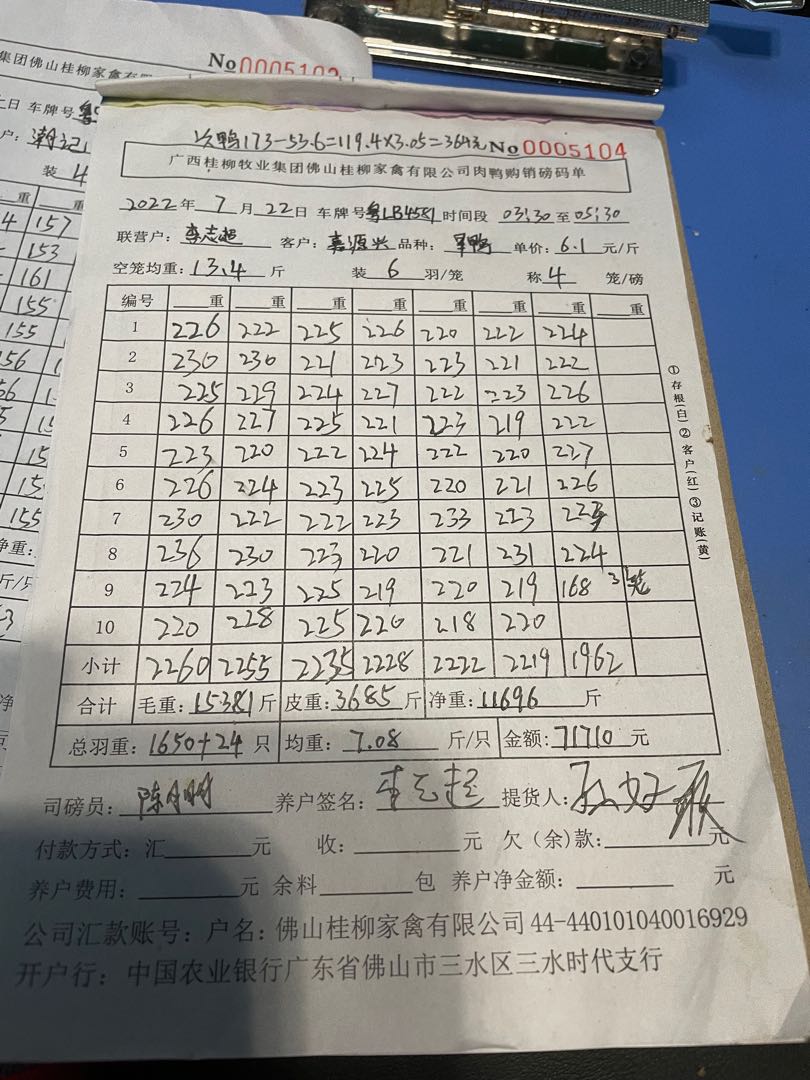 集团佛山桂柳家禽有限 No 0005102
日 车牌号 粤
户: 潮记
装 4
重 重
4 157
153
161
155
155
156
155
155
净重:
斤/只
次鸭173-53.6=119.4×3.05=364元 No 0005104
广西桂柳牧业集团佛山桂柳家禽有限公司肉鸭购销磅码单
2022年 7月22日 车牌号 粤LB4551 时间段 03:30 至 05:30
联营户: 李志超 客户: 嘉源兴 品种: 单价: 6.1 元/斤
空笼均重: 13.4 斤 装 6 羽/笼 称 4 笼/磅
编号 重 重 重 重 重 重 重 重
1 226 222 225 226 220 222 224
2 230 230 221 223 223 221 222
3 225 229 224 227 222 223 226
4 226 227 225 221 223 219 222
5 223 220 222 224 222 220 227
6 226 224 223 225 220 221 226
7 230 222 222 223 233 223 223
8 236 230 223 220 221 231 224
9 224 223 225 219 220 219 168 3笼
10 220 228 225 220 218 220
小计 2260 2255 2235 2228 2222 2219 1962
合计 毛重: 15381 斤 皮重: 3685 斤 净重: 11696 斤
总羽重: 1650+24 只 均重: 7.08 斤/只 金额: 71710 元
司磅员: 陈明明 养户签名: 李志超 提货人:
付款方式: 汇 元 收: 元 欠(余)款: 元
养户费用: 元 余料 包 养户净金额: 元
公司汇款账号: 户名: 佛山桂柳家禽有限公司 44-440101040016929
开户行: 中国农业银行广东省佛山市三水区三水时代支行
①存根(白)②客户(红)③记账(黄)